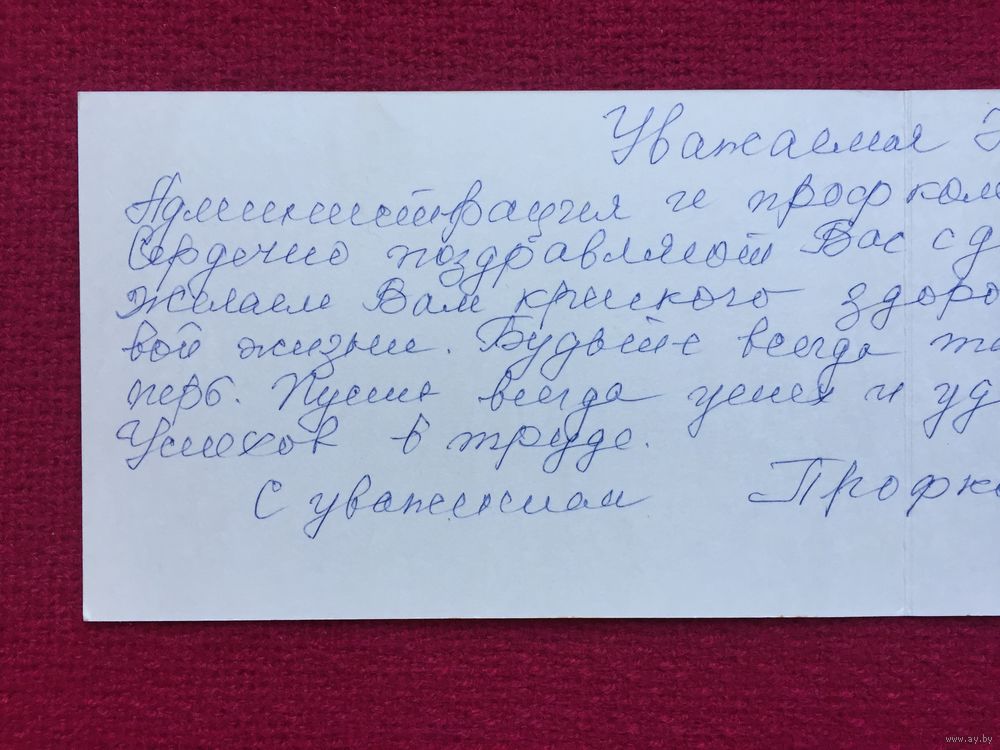 Уважаемая
Администрация и профком
Сердечно поздравляют Вас с д
Желаем Вам крепкого здоро
вой жизни. Будьте всегда та
перь. Пусть всегда успех и уд
Успехов в труде.
С уважением Профко
www.ay.by